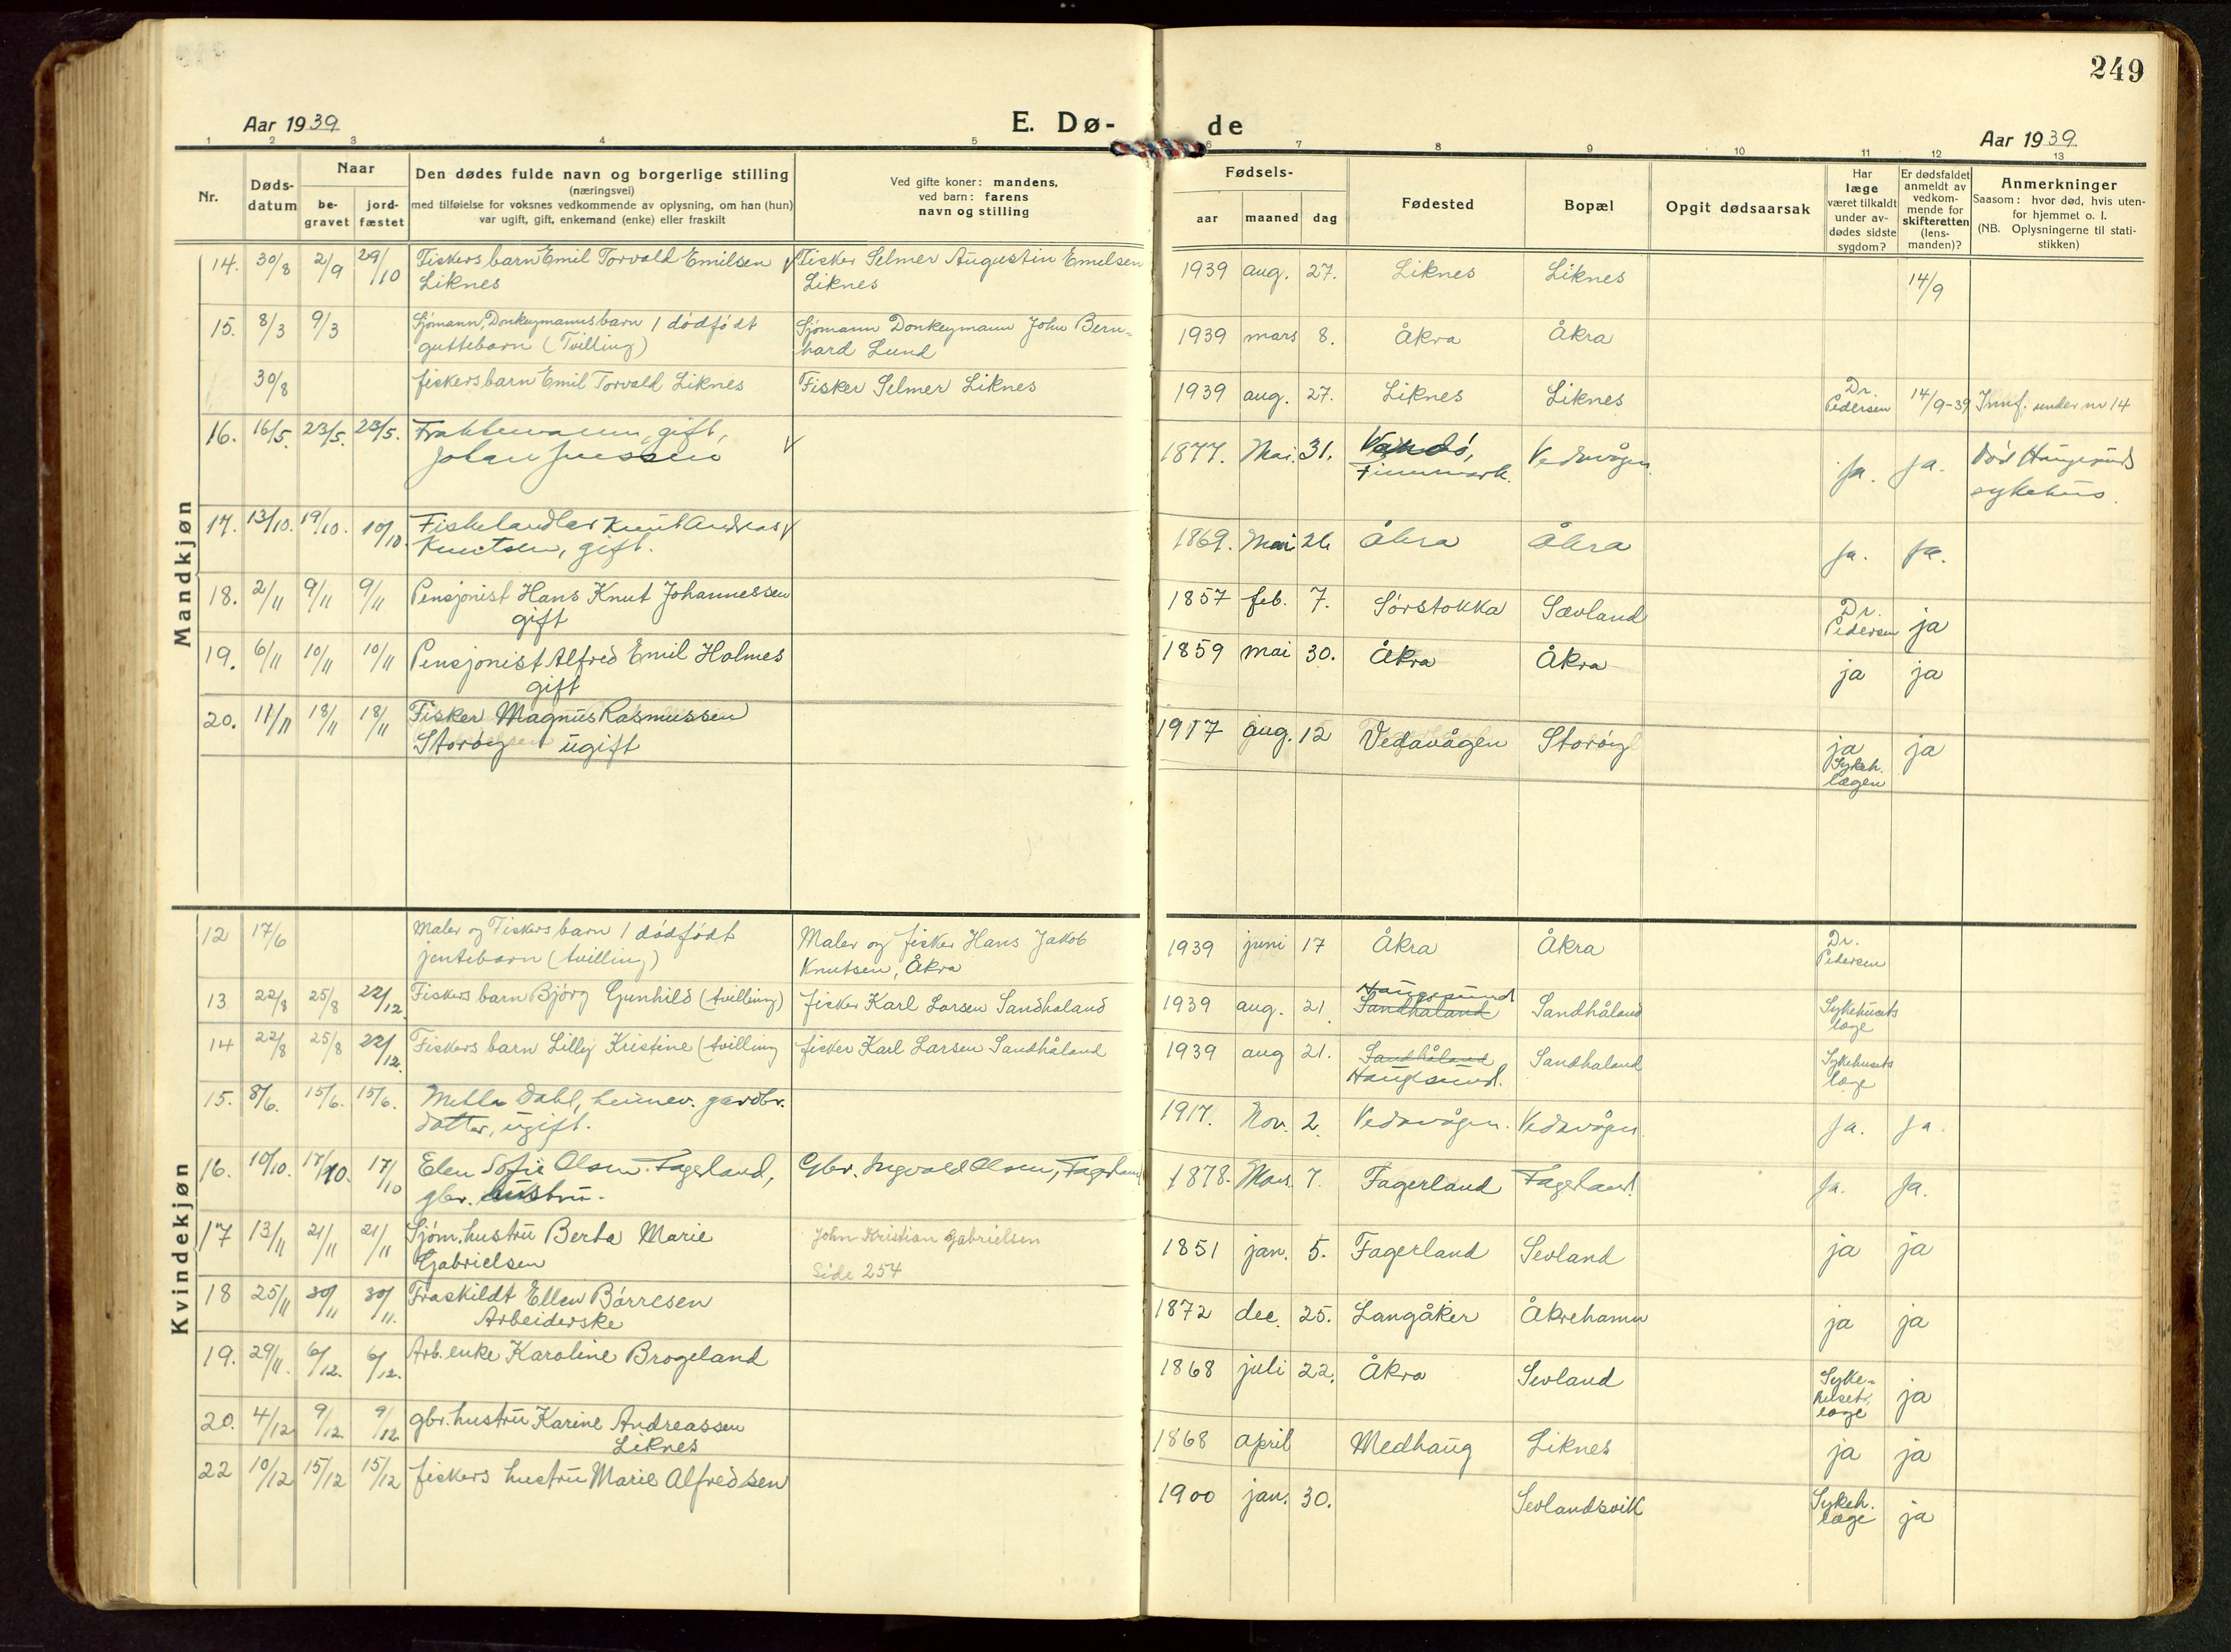 249
Aar 1939
E. Dø-
de
Aar 1939
1 2 3 4 5 6 7 8 9 10 11 12 13
Nr.
Døds-
datum
Naar
be-
gravet
jord-
fæstet
Den dødes fulde navn og borgerlige stilling
(næringsvei)
med tilføielse for voksnes vedkommende av oplysning, om han (hun)
var ugift, gift, enkemand (enke) eller fraskilt
Ved gifte koner: mandens,
ved barn: farens
navn og stilling
Fødsels-
aar maaned dag
Fødested
Bopæl
Opgit dødsaarsak
Har
læge
været tilkaldt
under av-
dødes sidste
sygdom?
Er dødsfaldet
anmeldt av
vedkom-
mende for
skifteretten
(lens-
manden)?
Anmerkninger
Saasom: hvor død, hvis uten-
for hjemmet o. l.
(NB. Oplysningerne til stati-
stikken)
Mandkjøn
14. 30/8 2/9 29/10 Fiskers barn Emil Torvald Emilsen √ Fisker Selmer Augustin Emelsen 1939 aug. 27. Liknes Liknes 14/9
Liknes Liknes
15. 8/3 9/3 Sjømann, Donkeymanns barn 1 dødfødt Sjømann Donkeymann John Bern= 1939 mars 8. Åkra Åkra
guttebarn (Tvilling) hard Lund
30/8 fiskers barn Emil Torvald Liknes Fisker Selmer Liknes 1939 aug. 27. Liknes Liknes Dr. Pedersen 14/9-39 Innf. under nr 14
16. 16/5. 23/5. 23/5. gift, √ 1877. Mai. 31. Vardø, Vedavågen Ja. Ja. Død Haugesunds
Johan Jenssen Finnmark. sykehus.
17. 13/10. 19/10. 10/10. Fiskehandler Knut Andreas √ 1869. Mai 26 Åkra Åkra Ja. Ja.
Knutsen, gift.
18. 2/11 9/11 9/11 Pensjonist Hans Knut Johannessen 1857 feb. 7. Sørstokka Sævland Dr. Pedersen ja
gift
19. 6/11 10/11 10/11 Pensjonist Alfred Emil Holmes 1859 mai 30. Åkra Åkra ja ja
gift
20. 11/11 18/11 18/11 Fisker Magnus Rasmussen 1917 aug. 12 Vedavågen Storøy ja ja
Storøy ugift Sykeh. lægen
Kvindekjøn
12 17/6 Maler og Fiskers barn 1 dødfødt Maler og fisker Hans Jakob 1939 juni 17 Åkra Åkra Dr. Pedersen
jentebarn (tvilling) Knutsen, Åkra
13 22/8 25/8 22/12. Fiskers barn Bjørg Gunhild (tvilling) fisker Karl Larsen Sandhaland 1939 aug. 21. Haugesund Sandhaland Sandhåland Sykehusets læge
14 22/8 25/8 22/12. Fiskers barn Lilly Kristine (tvilling fisker Karl Larsen Sandhåland 1939 aug 21. Sandhåland Haugesund. Sandhaland Sykehusets læge
15. 8/6. 15/6. 15/6. Dahl, gardbr. 1917. Nov. 2. Vedavågen. Vedavågen. Ja. Ja.
datter, ugift.
16. 10/10. 17/10. 17/10 Elen Sofie Olsen Fagerland, Gbr. Ingvald Olsen, Fagerland 1878. Mars. 7. Fagerland Fagerland. Ja. Ja.
gbr. hustru.
17 13/11 21/11 21/11 Sjøm. hustru Berta Marie John Kristian Gabrielsen 1851 jan. 5. Fagerland Sevland ja ja
Gabrielsen Side 254
18 25/11 30/11 30/11. Fraskildt Ellen Børresen 1872 dec. 25. Langåker Åkrehamn ja ja
Arbeiderske
19. 29/11. 6/12. 6/12. Arb. enke Karoline Brogeland 1868 juli 22. Åkra Sevland Syke= husets læge ja
20. 4/12 9/12. 9/12 gbr. hustru Karine Andreassen 1868 april Medhaug Liknes ja ja
Liknes
22 10/12 15/12 15/12 fiskers hustru Marie Alfredsen 1900 jan. 30. Sevlandsvik Sykeh. læge ja